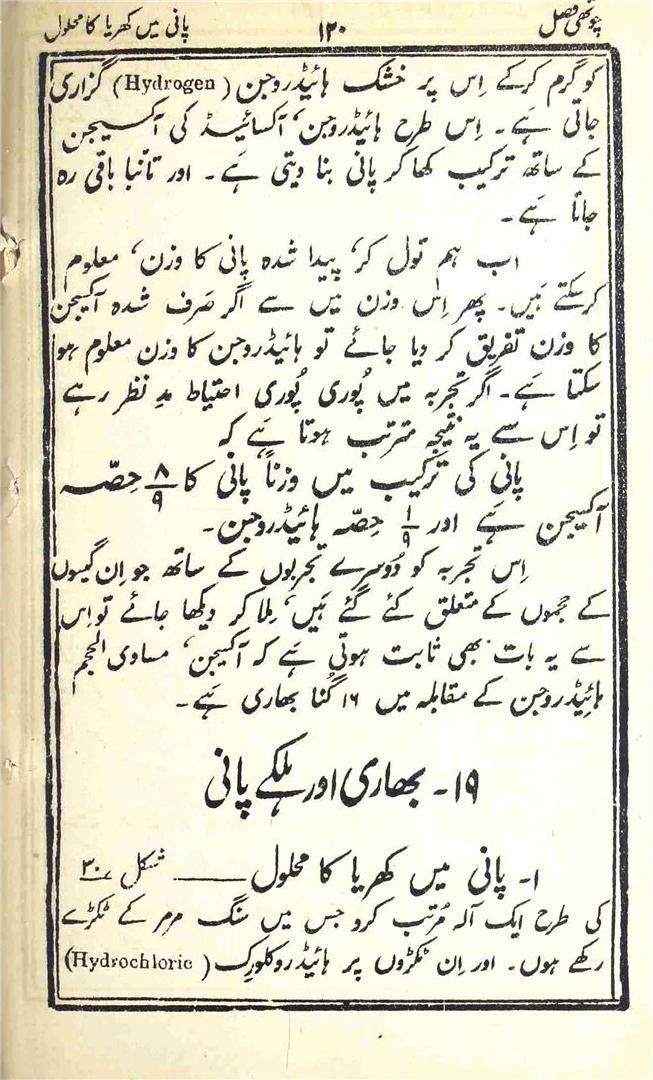 چوتھی فصل ۱۲۰ پانی میں کھریا کا محلول
کو گرم کرکے اِس پر خشک ہائیڈروجن (Hydrogen) گزاری
جاتی ہَے۔ اِس طرح ہائیڈروجن، آکسائیڈ کی آکسیجن
کے ساتھ ترکیب کھا کر پانی بنا دیتی ہَے۔ اور تانبا باقی رہ
جاتا ہَے۔
اب ہم تول کر، پیدا شدہ پانی کا وزن، معلوم
کرسکتے ہَیں۔ پھر اِس وزن میں سے اگر صَرف شدہ آکسیجن
کا وزن تفریق کر دیا جائے تو ہائیڈروجن کا وزن معلوم ہو
سکتا ہَے۔ اگر تجربہ میں پُوری پُوری احتیاط مدِ نظر رہے
تو اِس سے یہ نتیجہ مترتب ہوتا ہَے کہ
پانی کی ترکیب میں وزناً پانی کا ۸/۹ حِصّہ
آکسیجن ہَے اور ۱/۹ حِصّہ ہائیڈروجن۔
اِس تجربہ کو دُوسرے تجربوں کے ساتھ جو اِن گیسوں
کے حجموں کے متعلق کئے گئے ہَیں، مِلا کر دیکھا جائے تو اِس
سے یہ بات بھی ثابت ہوتی ہَے کہ آکسیجن، مساوی الحجم
ہائیڈروجن کے مقابلہ میں ۱۶ گُنا بھاری ہَے۔
۱۹۔ بھاری اور ہلکے پانی
۱۔ پانی میں کھریا کا محلول ــــــ شکل ۳۰
کی طرح ایک آلہ مُرتب کرو جس میں سنگ مرمر کے ٹکڑے
رکھے ہوں۔ اور اِن ٹکڑوں پر ہائیڈروکلورِک (Hydrochloric)